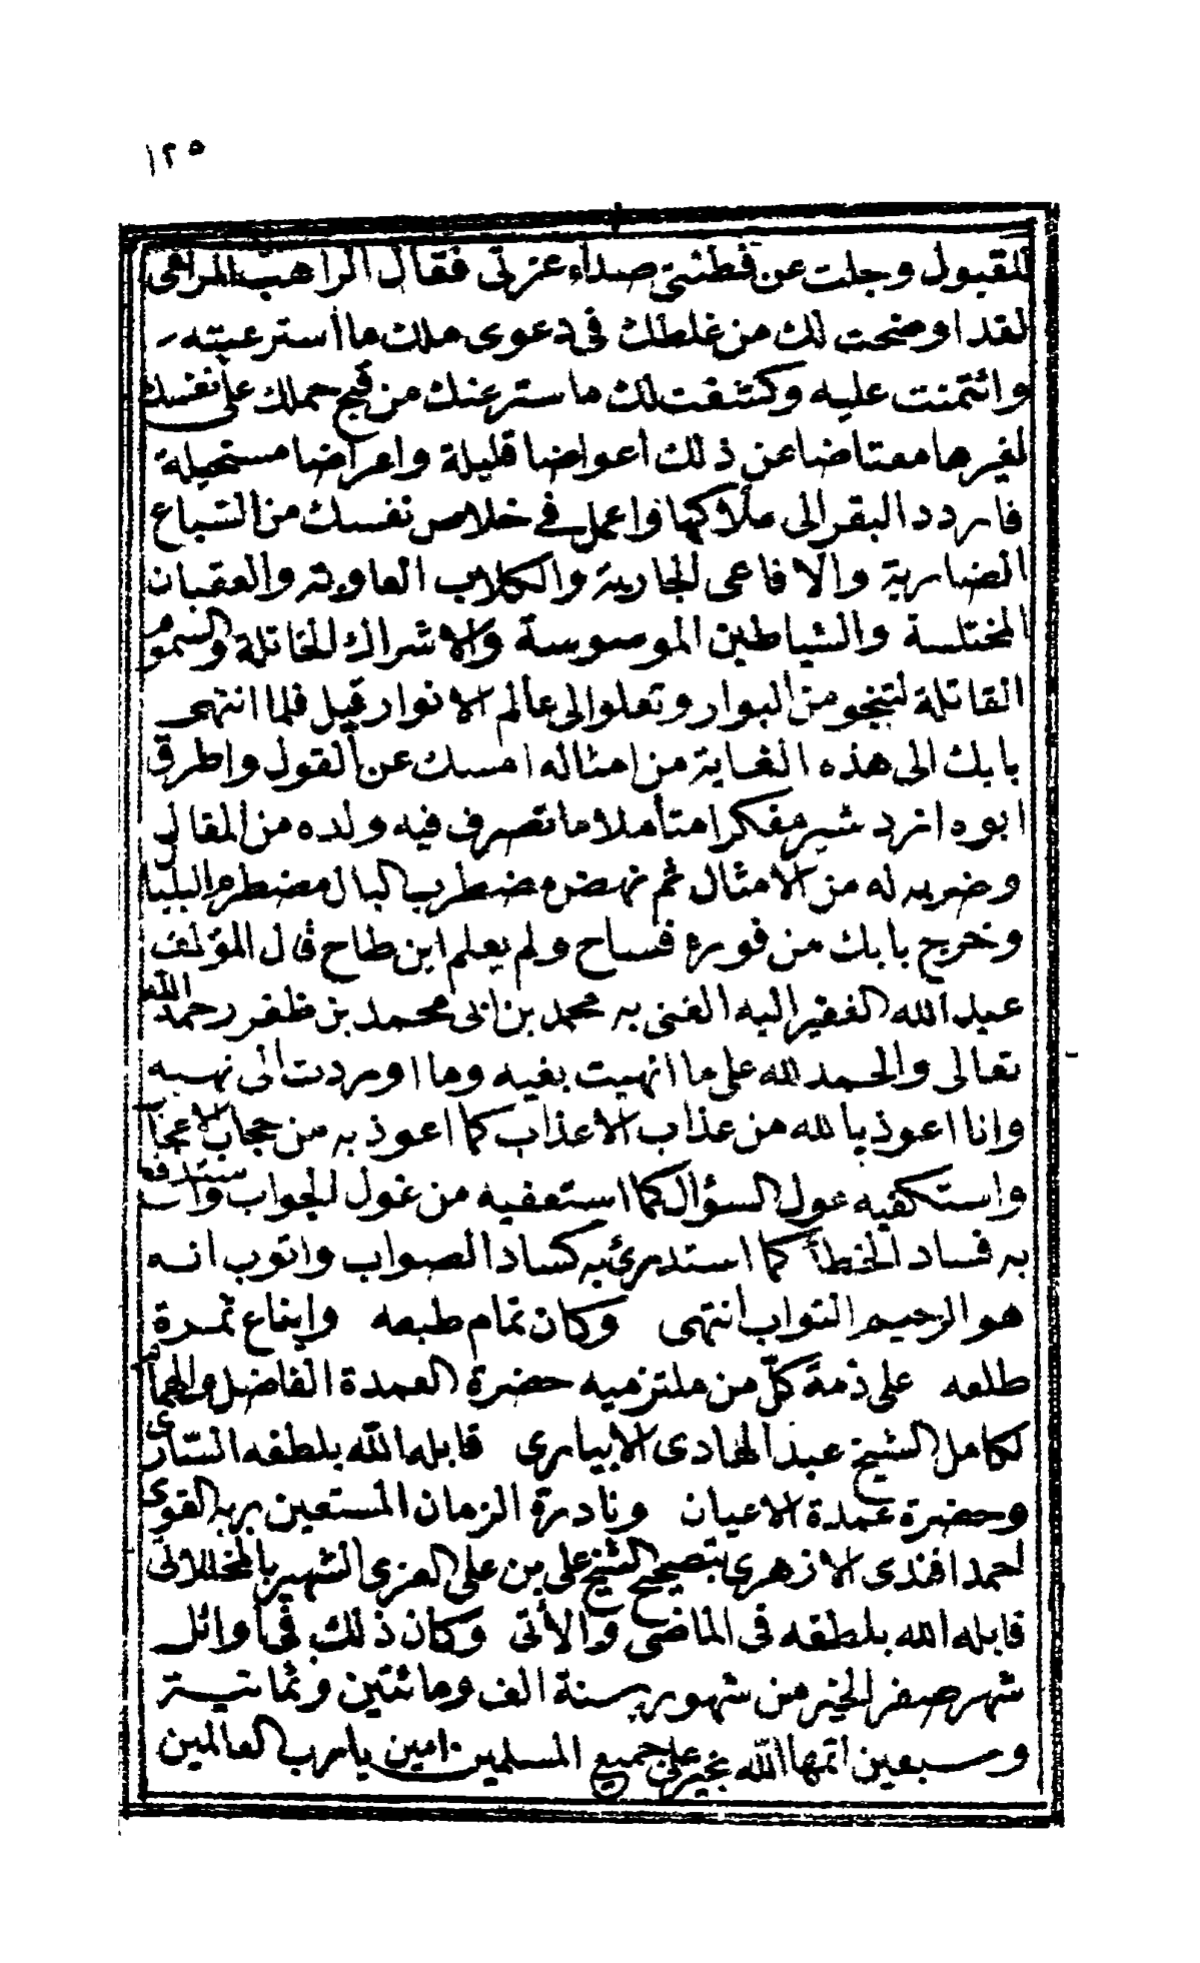 ١٢٥
للقبول وجلت عن فطنتى صداء عزلتى فقال الراهب المراقى
لقد اوضحت لك من غلطك فى دعوى ملك ما استرعيته
وائتمنت عليه وكشفت لك ما ستر عنك من قبح حملك على نفسك
لغيرها معتاضا عن ذلك اعواضا قليلة واعراضا مستحيلة
فاردد البقر الى ملاكها واعمل فى خلاص نفسك من السباع
الضارية والافاعى الجارية والكلاب العاوية والعقبان
المختلسة والشياطين الموسوسة والاشراك الخاتلة والسموم
القاتلة لتنجو من البوار وتعلو الى عالم الانوار قيل فلما انتهى
بابك الى هذه الغاية من امثاله امسك عن القول واطرق
ابوه ازدشير مفكرا متأملا ما تصرف فيه ولده من المقال
وضربه له من الامثال ثم نهض مضطرب البال مضطرم البلبال
وخرج بابك من فوره فساح ولم يعلم اين طاح قال المؤلف
عبد الله الفقير اليه الغنى به محمد بن ابى محمد بن ظفر رحمه الله
تعالى والحمد لله على ما انهيت بغيه وما اوردت الى نهيه
وانا اعوذ بالله من عذاب الاعذاب كما اعوذ به من حجاب الاعجاب
واستكفيه عول السؤال كما استعفيه من غول الجواب واستدفع
به فساد الخطأ كما استدرئ به كساد الصواب واتوب انه
هو الرحيم التواب انتهى وكان تمام طبعه وايناع ثمرة
طلعه على ذمة كلّ من ملتزميه حضرة العمدة الفاضل والهمام
الكامل الشيخ عبد الهادى الابيارى قابله الله بلطفه السّارى
وحضرة عمدة الاعيان ونادرة الزمان المستعين بربه القوى
احمد افندى الازهرى بتصحيح الشيخ على بن على العزى الشهير بالمخللاتى
قابله الله بلطفه فى الماضى والأتى وكان ذلك فى اوائل
شهر صفر الخير من شهور سنة الف ومائتين وثمانية
وسبعين اتمها الله بخير على جميع المسلمين امين يا رب العالمين